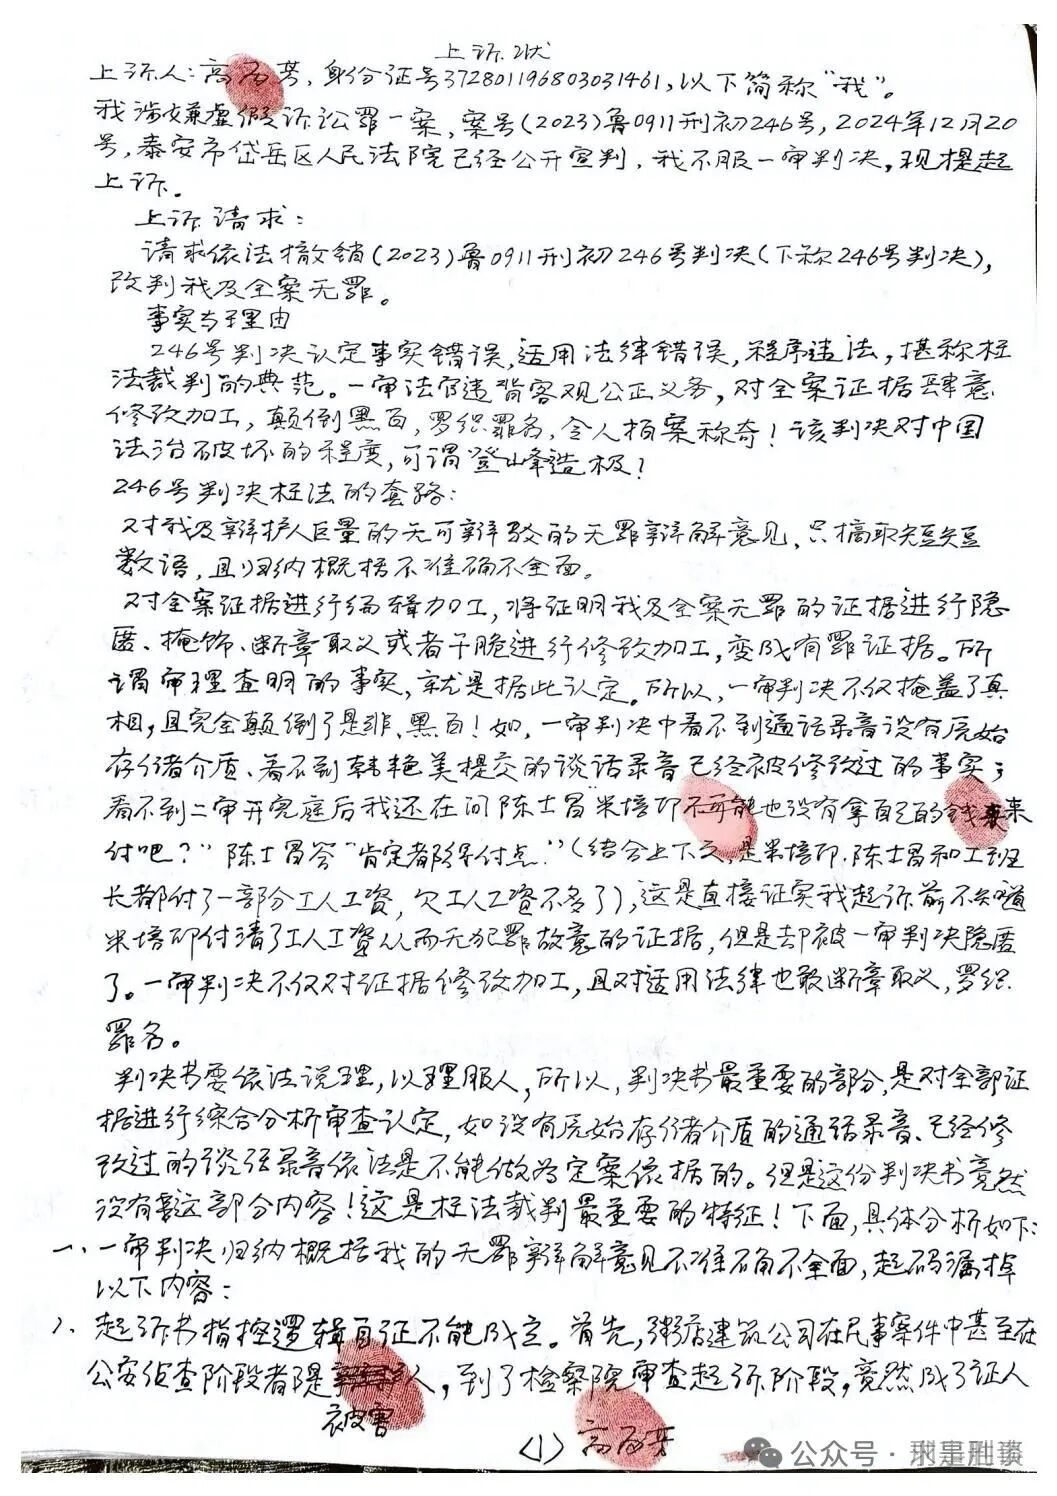 上诉状
上诉人：高丙芳，身份证号372801196803031461，以下简称“我”。
我涉嫌虚假诉讼罪一案，案号(2023)鲁0911刑初246号，2024年12月20
号，泰安市岱岳区人民法院已经公开宣判，我不服一审判决，现提起
上诉。
上诉请求：
请求依法撤销(2023)鲁0911刑初246号判决(下称246号判决)，
改判我及全案无罪。
事实与理由
246号判决认定事实错误，适用法律错误，程序违法，堪称枉
法裁判的典范。一审法官违背客观公正义务，对全案证据肆意
修改加工，颠倒黑白，罗织罪名，令人拍案称奇！该判决对中国
法治破坏的程度，可谓登峰造极？
246号判决枉法的套路：
对我及辩护人巨量的无可辩驳的无罪辩解意见，只摘取短短
数语，且归纳概括不准确不全面。
对全案证据进行编辑加工，将证明我及全案无罪的证据进行隐
匿、掩饰、断章取义或者干脆进行修改加工，变成有罪证据。所
谓审理查明的事实，就是据此认定。所以，一审判决不仅掩盖了真
相，且完全颠倒了是非、黑白！如，一审判决中看不到通话录音没有原始
存储介质、看不到韩艳美提交的谈话录音已经被修改过的事实；
看不到二审开完庭后我还在问陈士冒“米培印不可能也没有拿自己的钱来
付吧？”陈士冒答“肯定都得付点”(结合上下文，是米培印、陈士冒和工班
长都付了一部分工人工资，欠工人工资不多了)，这是直接证实我起诉前不知道
米培印付清了工人工资从而无犯罪故意的证据，但是却被一审判决隐匿
了。一审判决不仅对证据修改加工，且对适用法律也敢断章取义，罗织
罪名。
判决书要依法说理，以理服人，所以，判决书最重要的部分，是对全部证
据进行综合分析审查认定，如没有原始存储介质的通话录音、已经修
改过的谈话录音依法是不能做为定案依据的。但是这份判决书竟然
没有这部分内容！这是枉法裁判最重要的特征！下面，具体分析如下：
一、一审判决归纳概括我的无罪辩解意见不准确不全面，起码漏掉
以下内容：
1、起诉书指控逻辑自证不能成立。首先，粥店建筑公司在民事案件中甚至在
公安侦查阶段都是被害人，到了检察院审查起诉阶段，竟然成了证人
(1) 高丙芳
公众号·